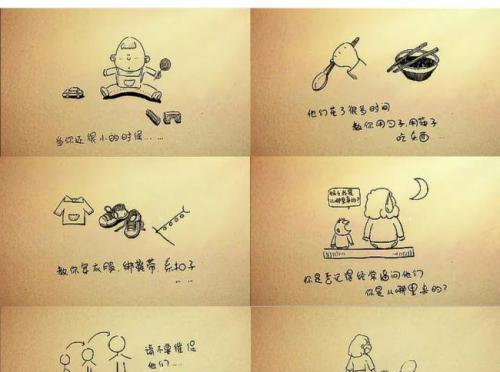 当你还很小的时候……
他们花了很多时间
教你用勺子.用筷子
吃东西……
教你穿衣服.绑鞋带.系扣子
……
你是否记得经常逼问他们
你是从哪里来的?
请不要催促
他们……